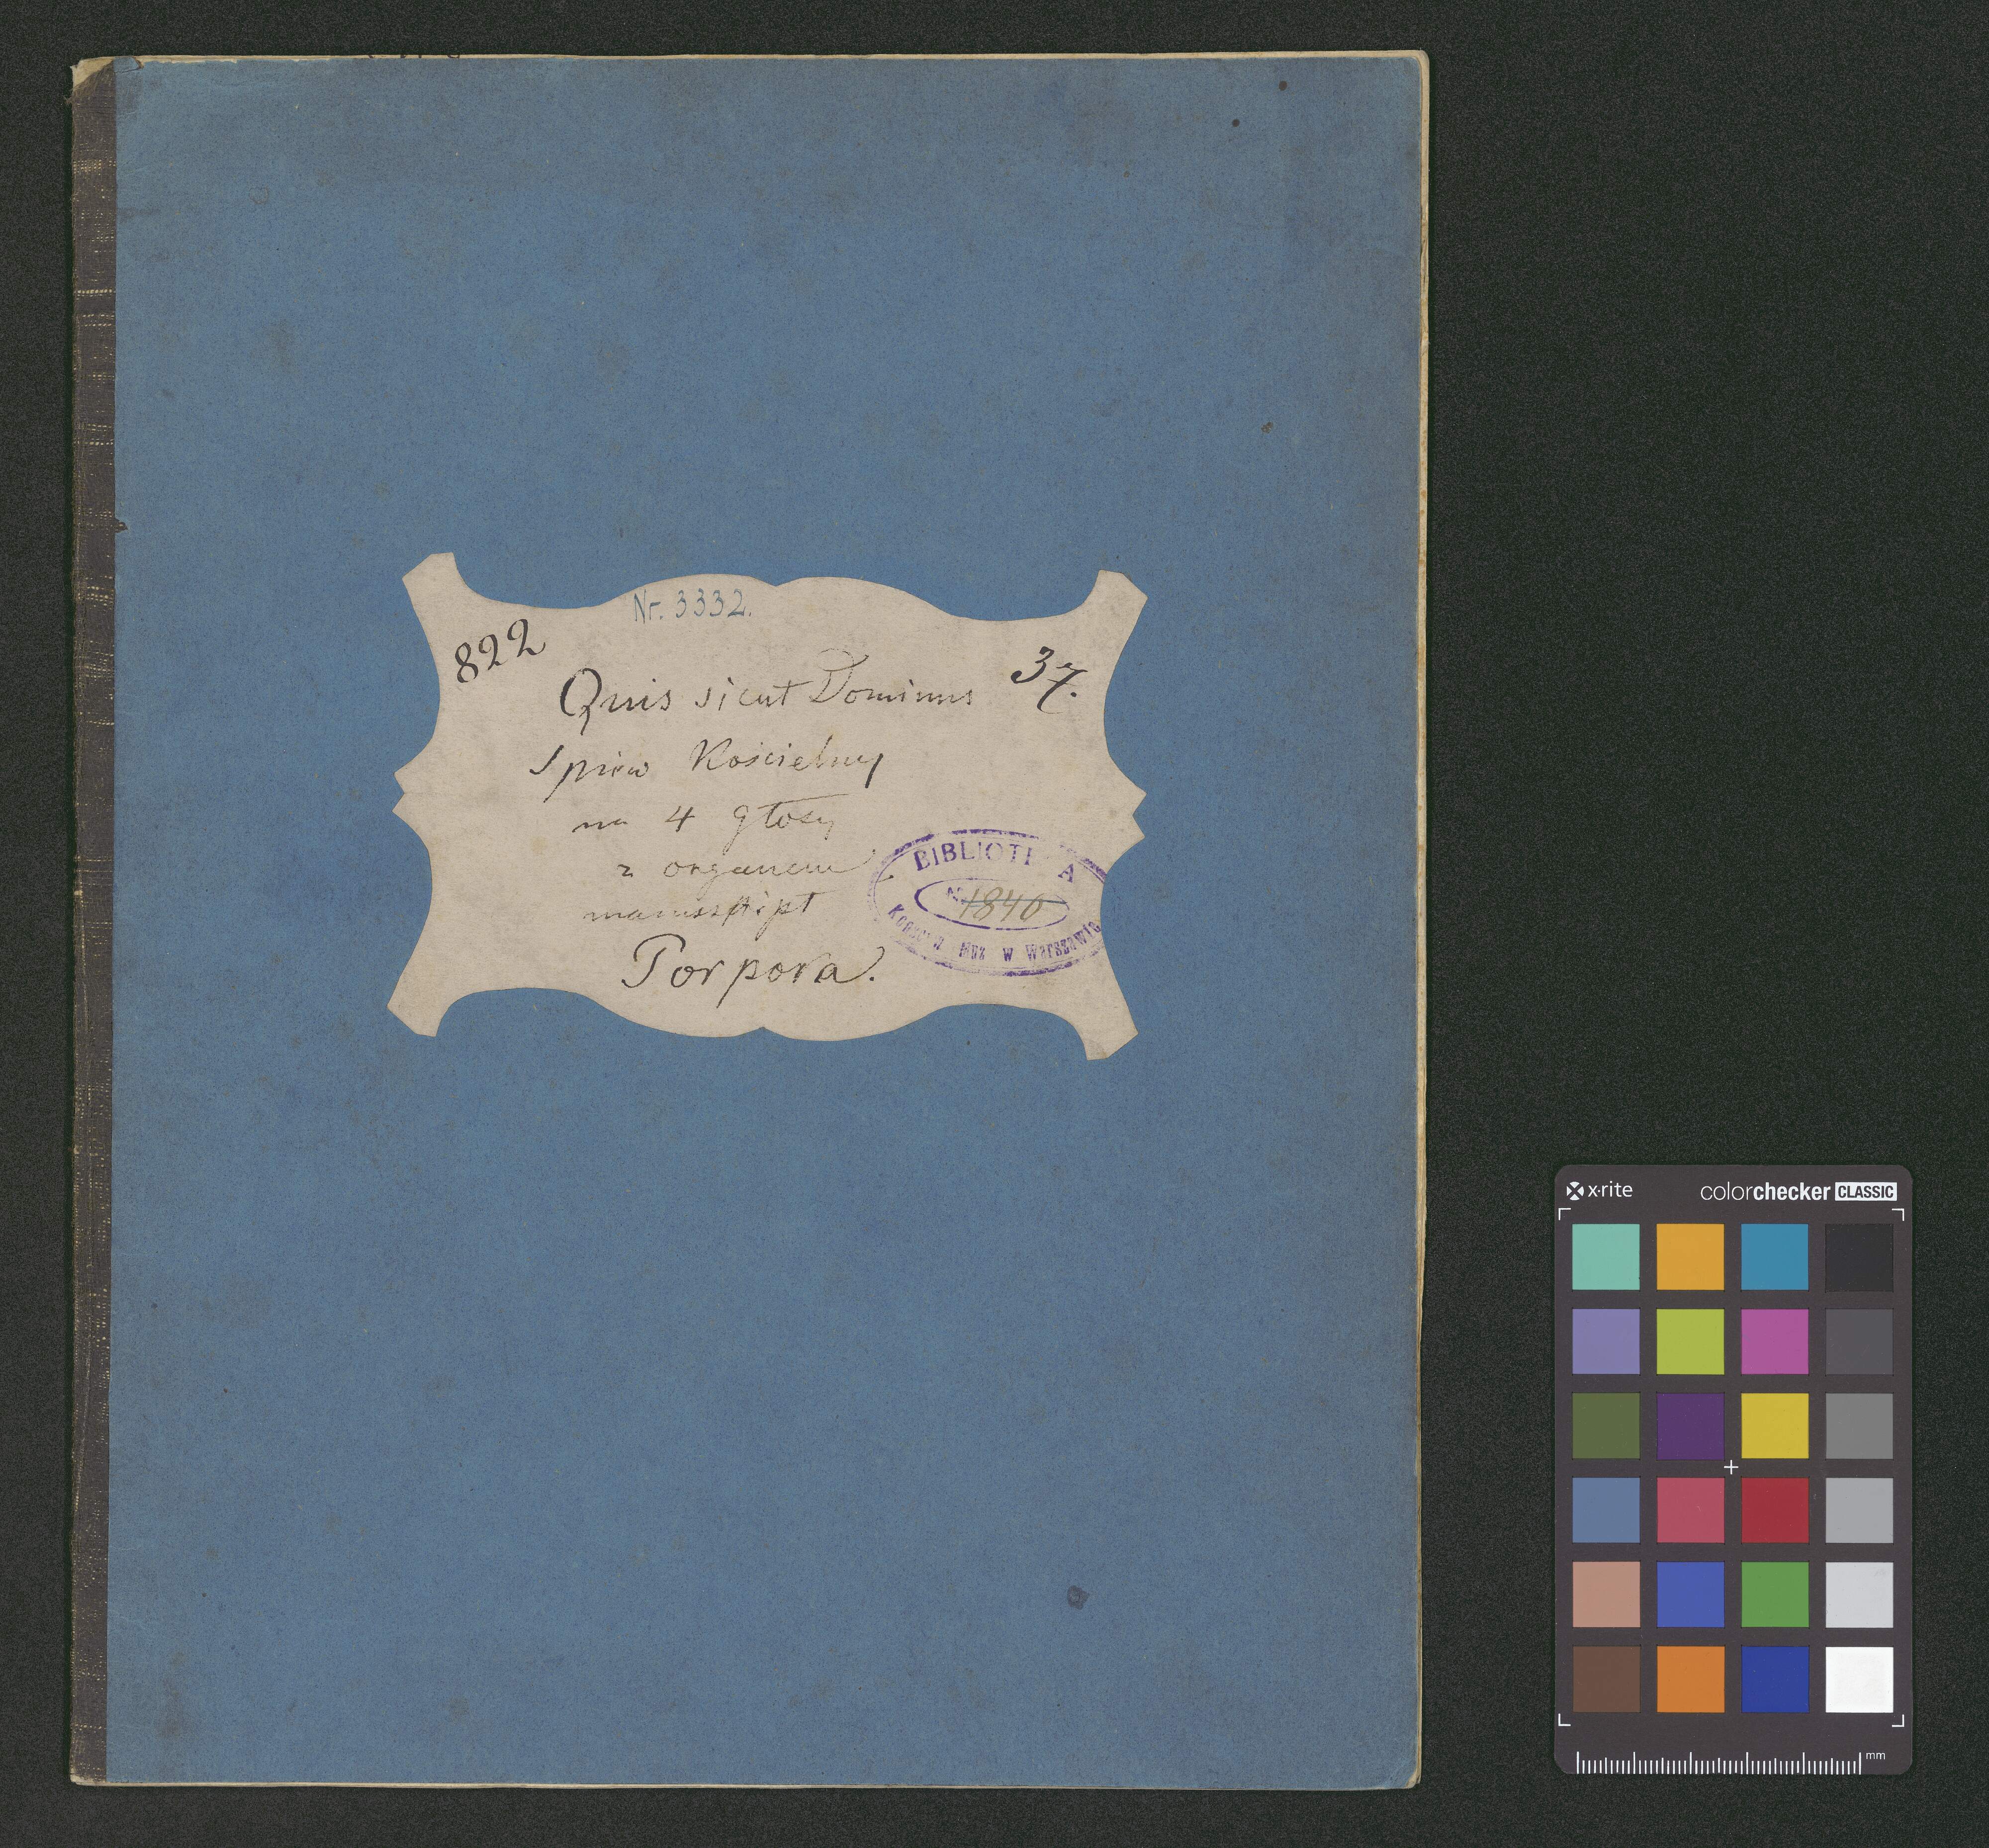 Nr. 3332.
822
37.
Quis sicut Dominus
Spiew Kościelny
na 4 głosy
z organem
manusskript
Porpora.
BIBLIOTE A
No 1840
Muz w Warszawie
x·rite
colorchecker CLASSIC
mm